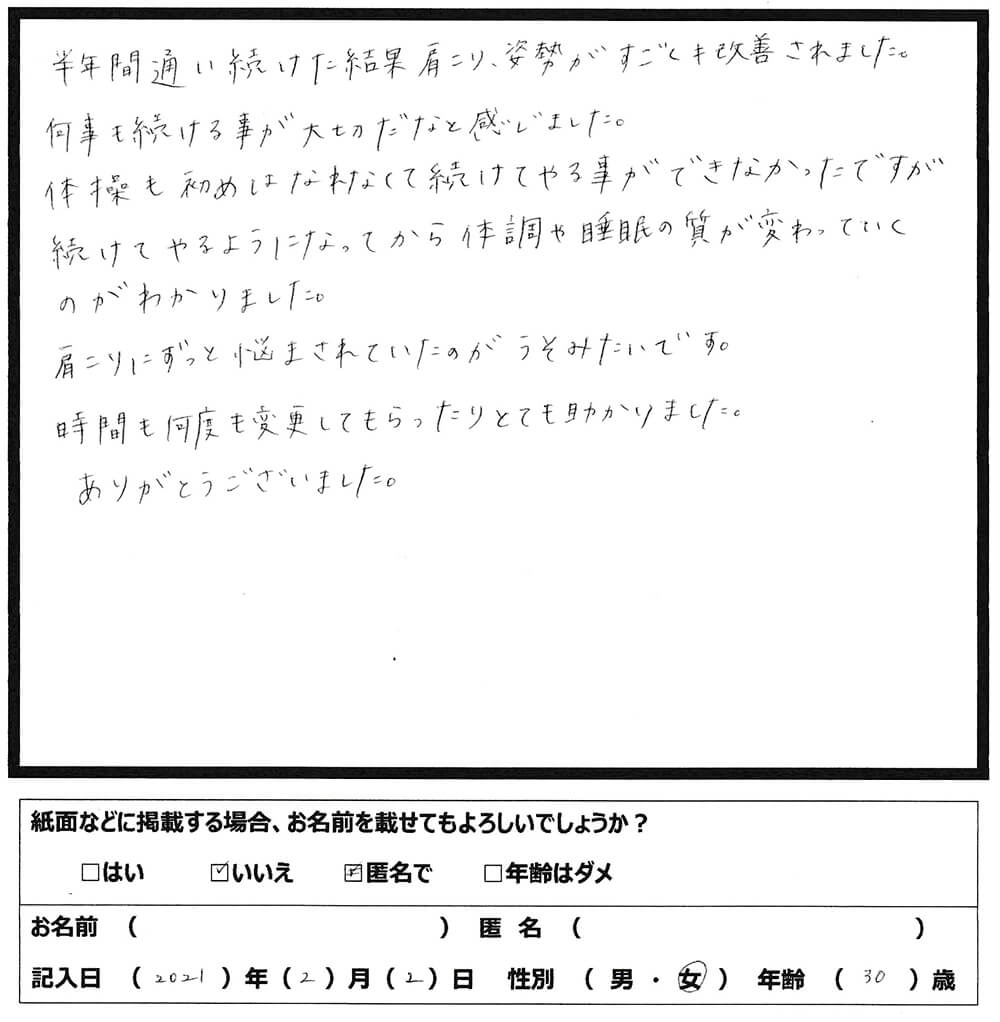 半年間通い続けた結果肩こり、姿勢がすごくも改善されました。
何事も続ける事が大切だなと感じました。
体操も初めはなれなくて続けてやる事ができなかったですが
続けてやるようになってから体調や睡眠の質が変わっていく
のがわかりました。
肩こりにずっと悩まされていたのがうそみたいです。
時間も何度も変更してもらったりとても助かりました。
ありがとうございました。
紙面などに掲載する場合、お名前を載せてもよろしいでしょうか？
□はい ☑いいえ ☑匿名で □年齢はダメ
お名前 （ ） 匿名 （ ）
記入日 （ 2021 ）年（ 2 ）月（ 2 ）日 性別 （ 男 ・ 女 ） 年齢 （ 30 ）歳